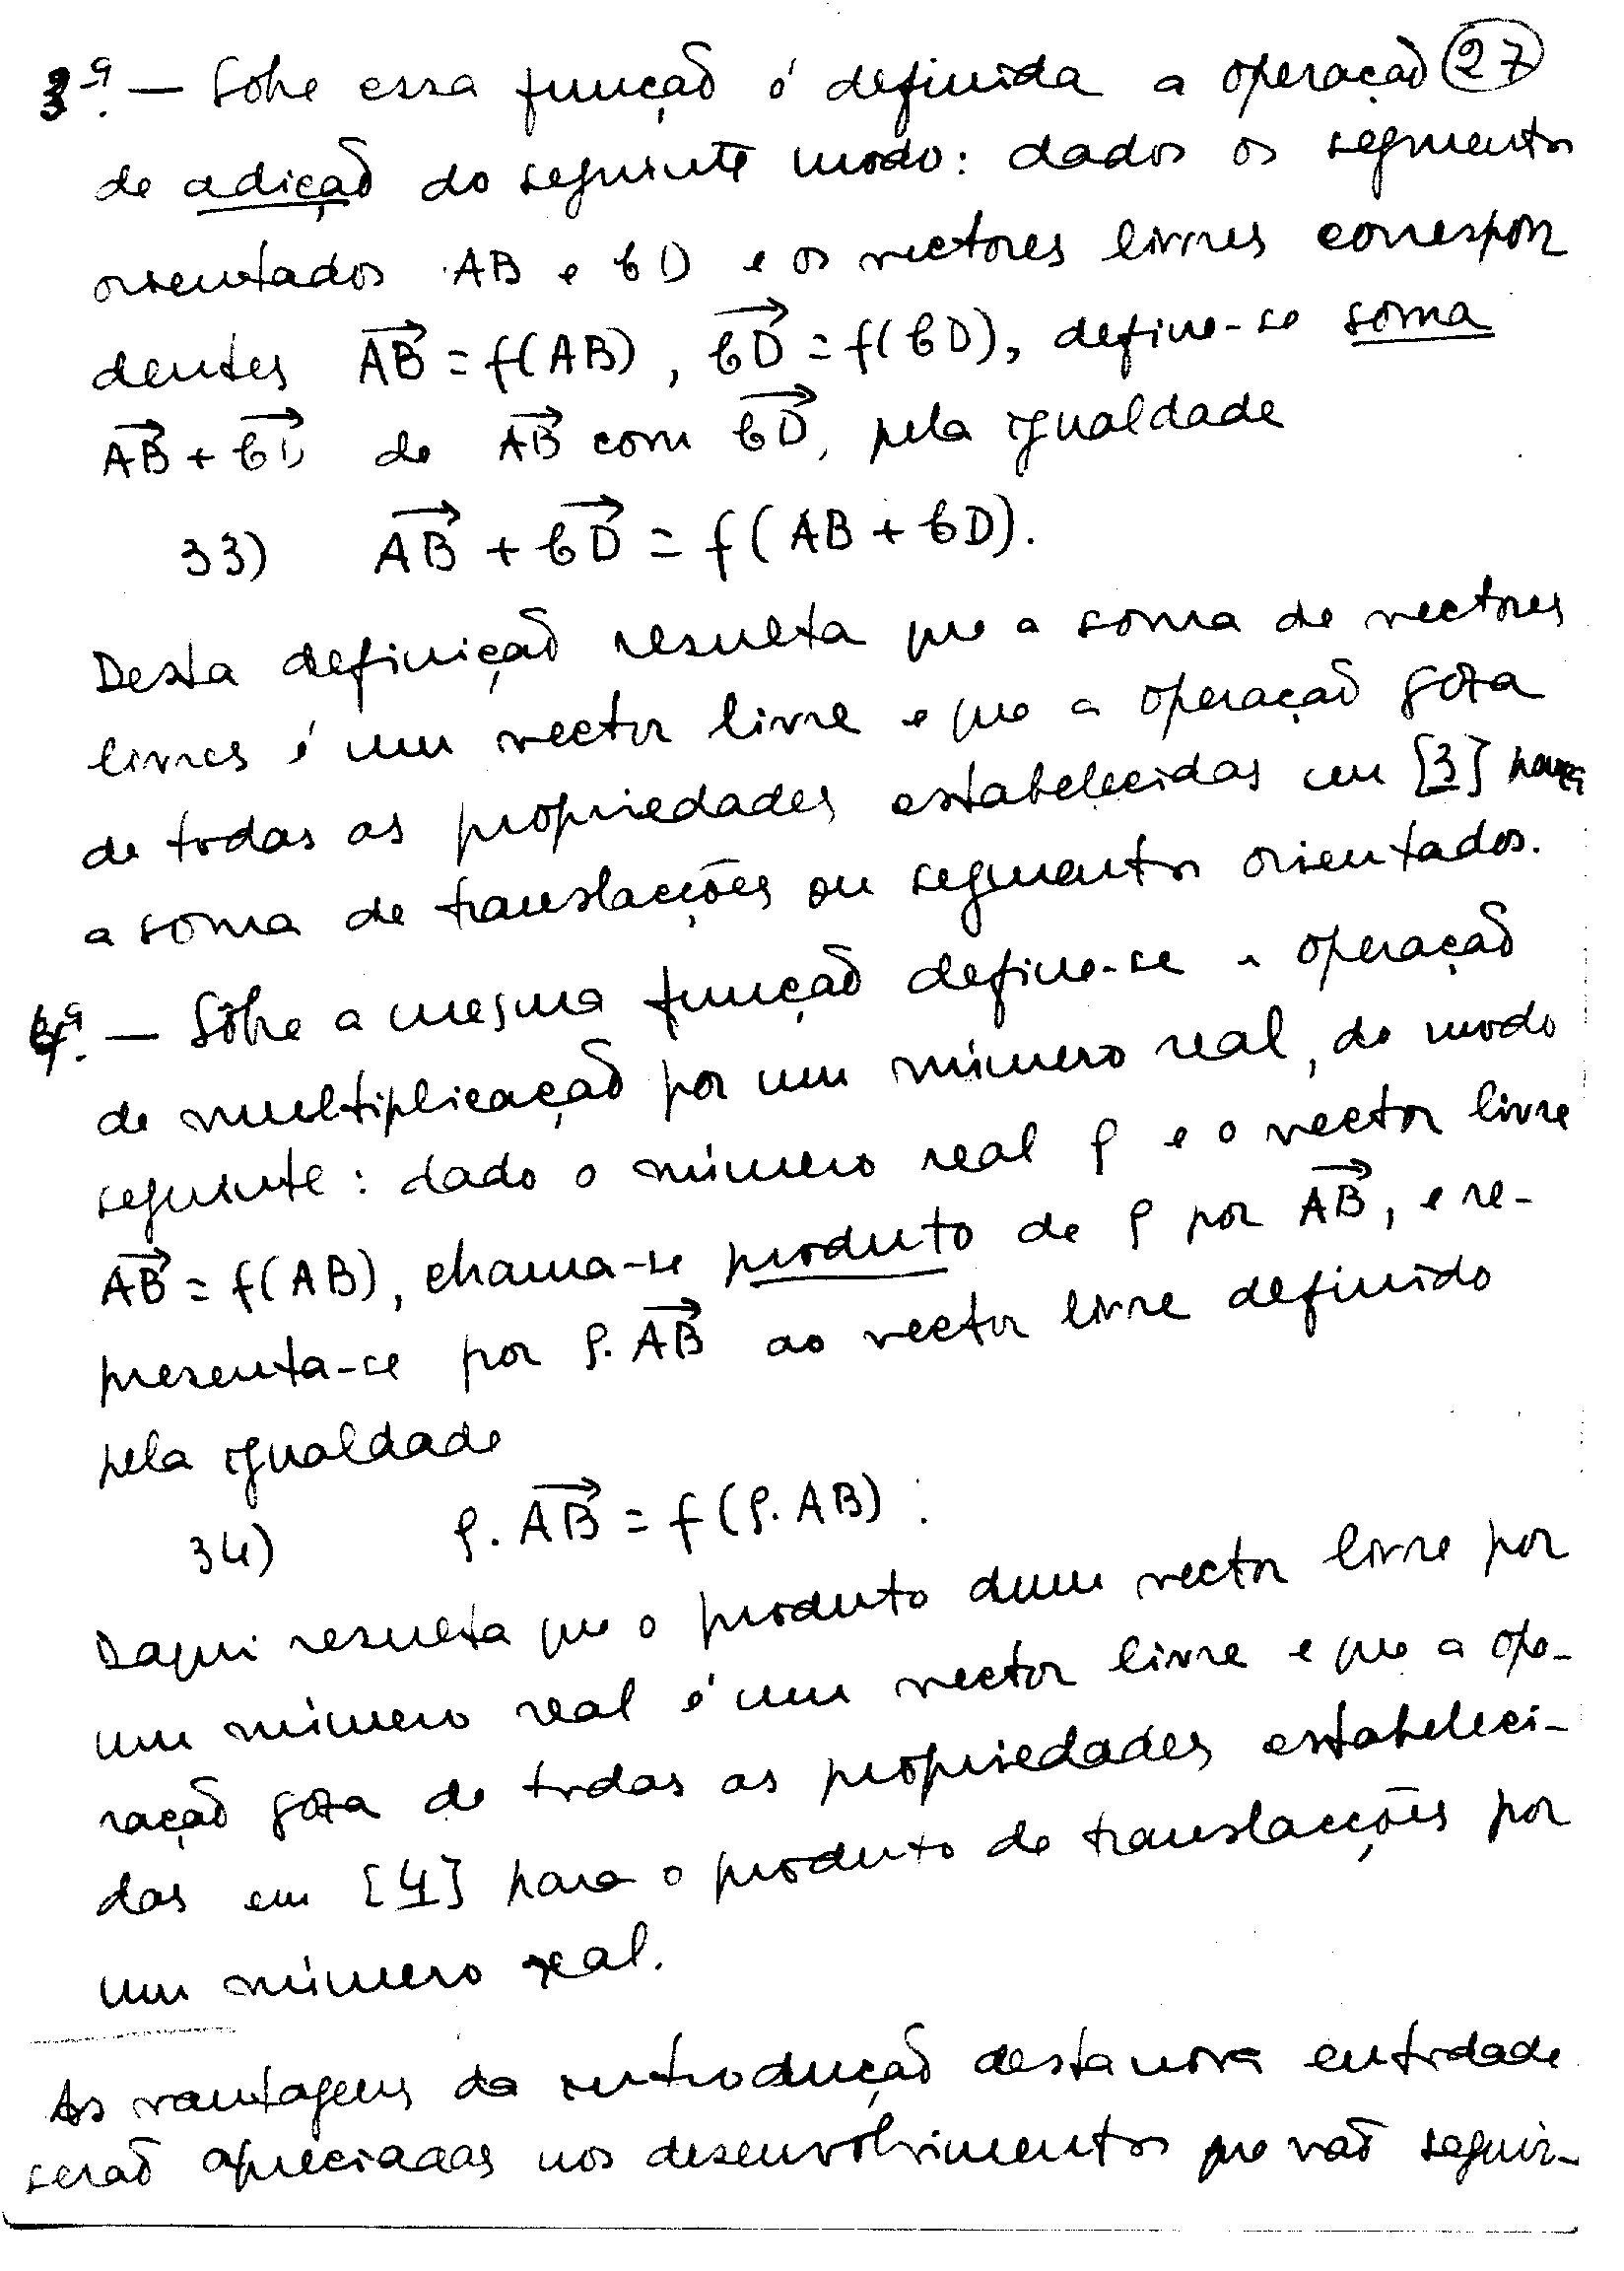 3ª. — Sobre essa função é definida a operação (27)
de adição do seguinte modo: dados os segmentos
orientados AB e CD e os vectores livres correspon
dentes A͞B⃗ = f(AB), C͞D⃗ = f(CD), define-se soma
A͞B⃗ + C͞D⃗ de A͞B⃗ com C͞D⃗, pela igualdade
33) A͞B⃗ + C͞D⃗ = f(AB + CD).
Desta definição resulta que a soma de vectores
livres é um vector livre e que a operação goza
de todas as propriedades estabelecidas em [3] para
a soma de translacções ou segmentos orientados.
4ª. — Sôbre a mesma função define-se a operação
de multiplicação por um número real, do modo
seguinte: dado o número real ρ e o vector livre
A͞B⃗ = f(AB), chama-se produto de ρ por A͞B⃗, e re-
presenta-se por ρ.A͞B⃗ ao vector livre definido
pela igualdade
34) ρ.A͞B⃗ = f(ρ.AB):
Daqui resulta que o produto dum vector livre por
um número real é um vector livre e que a ope-
ração goza de todas as propriedades estabeleci-
das em [4] para o produto de translacções por
um número real.
As vantagens da introdução desta nova entidade
serão apreciadas nos desenvolvimentos que vão seguir-